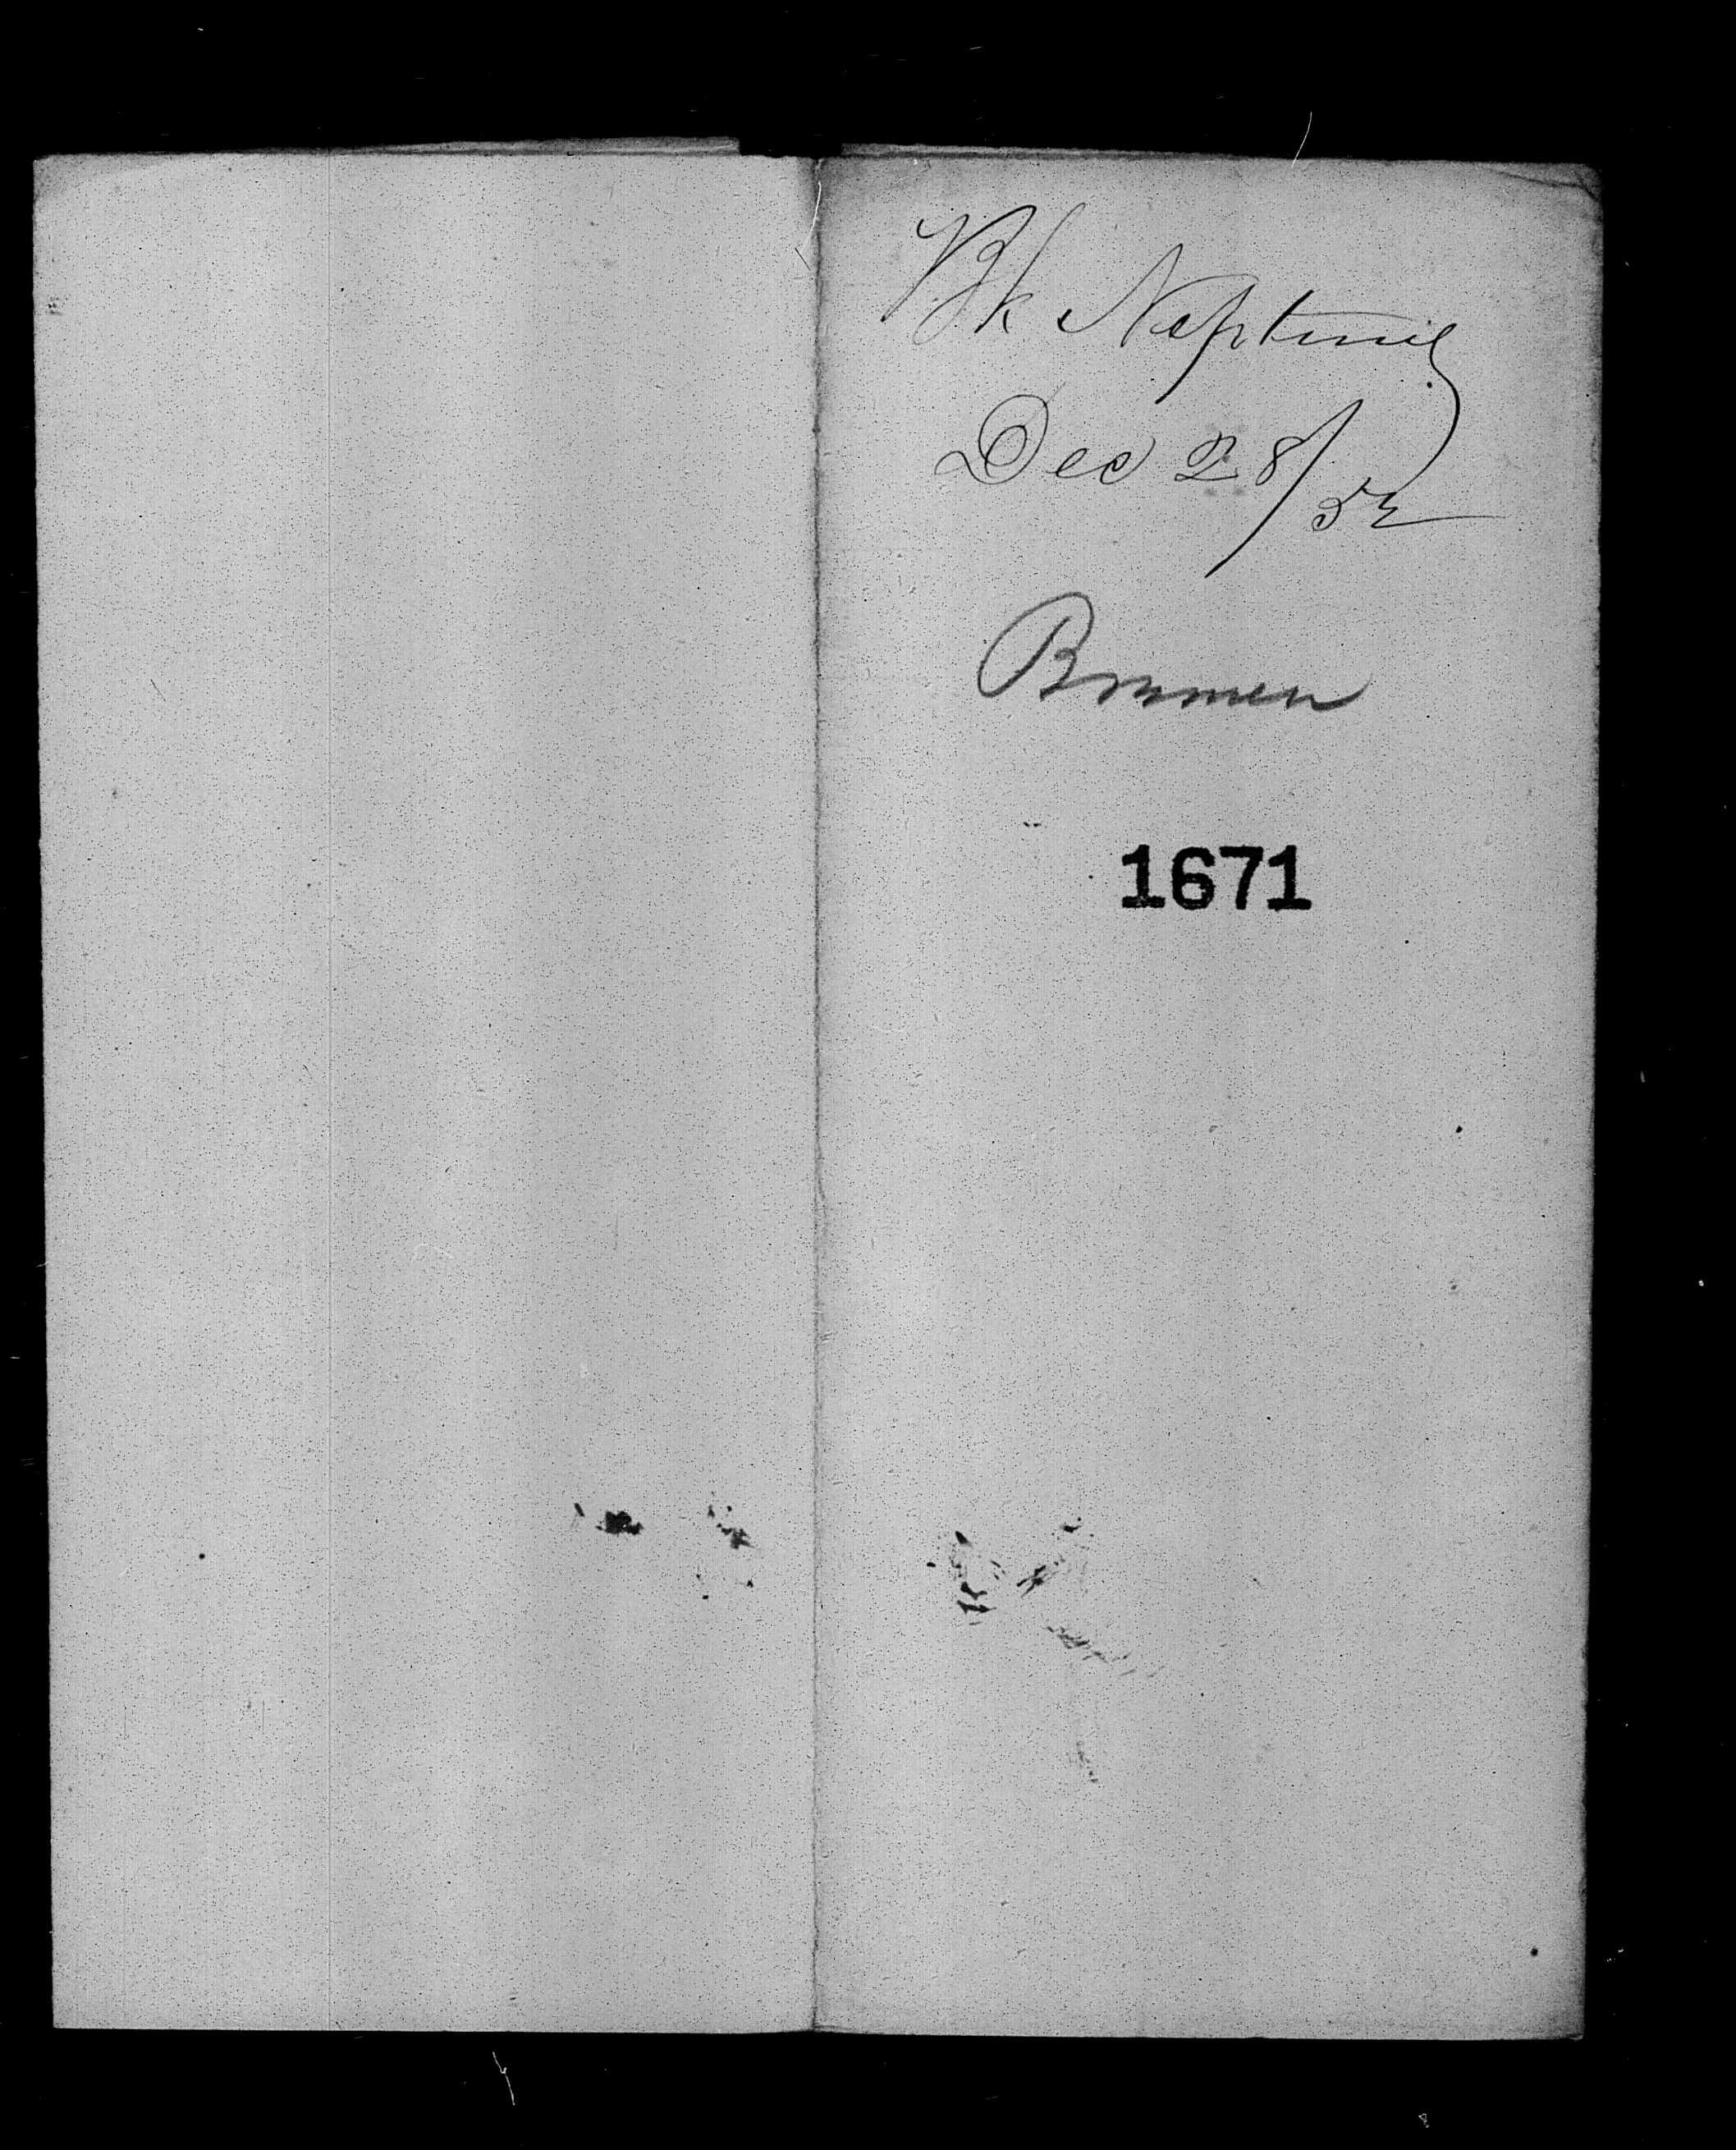 Bk Neptune
Dec 28/52
Bremen
1671